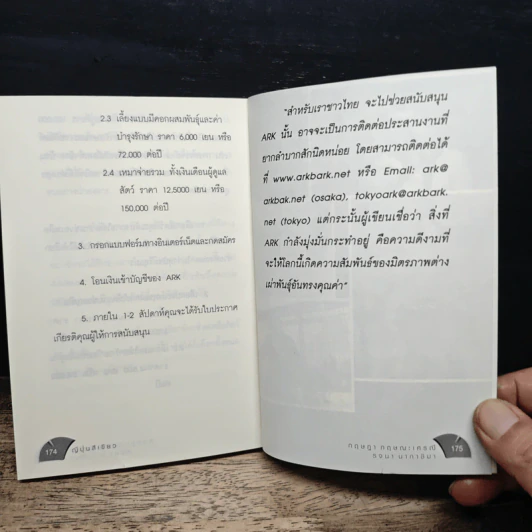 2.3 เลี้ยงแบบมีดอกผสมพันธุ์และค่า
บำรุงรักษา ราคา 6,000 เยน หรือ
72,000 ต่อปี
2.4 เหมาจ่ายรวม ทั้งเงินเดือนผู้ดูแล
สัตว์ ราคา 12,5000 เยน หรือ
150,000 ต่อปี
3. กรอกแบบฟอร์มทางอินเตอร์เน็ตและกดสมัคร
4. โอนเงินเข้าบัญชีของ ARK
5. ภายใน 1-2 สัปดาห์คุณจะได้รับใบประกาศ
เกียรติคุณผู้ให้การสนับสนุน
174 ญี่ปุ่นสีเขียว
"สำหรับเราชาวไทย จะไปช่วยสนับสนุน
ARK นั้น อาจจะเป็นการติดต่อประสานงานที่
ยากลำบากสักนิดหน่อย โดยสามารถติดต่อได้
ที่ www.arkbark.net หรือ Email: ark@
arkbak.net (osaka), tokyoark@arkbark.
net (tokyo) แต่กระนั้นผู้เขียนเชื่อว่า สิ่งที่
ARK กำลังมุ่งมั่นกระทำอยู่ คือความดีงามที่
จะให้โลกนี้เกิดความสัมพันธ์ของมิตรภาพต่าง
เผ่าพันธุ์อันทรงคุณค่า"
175